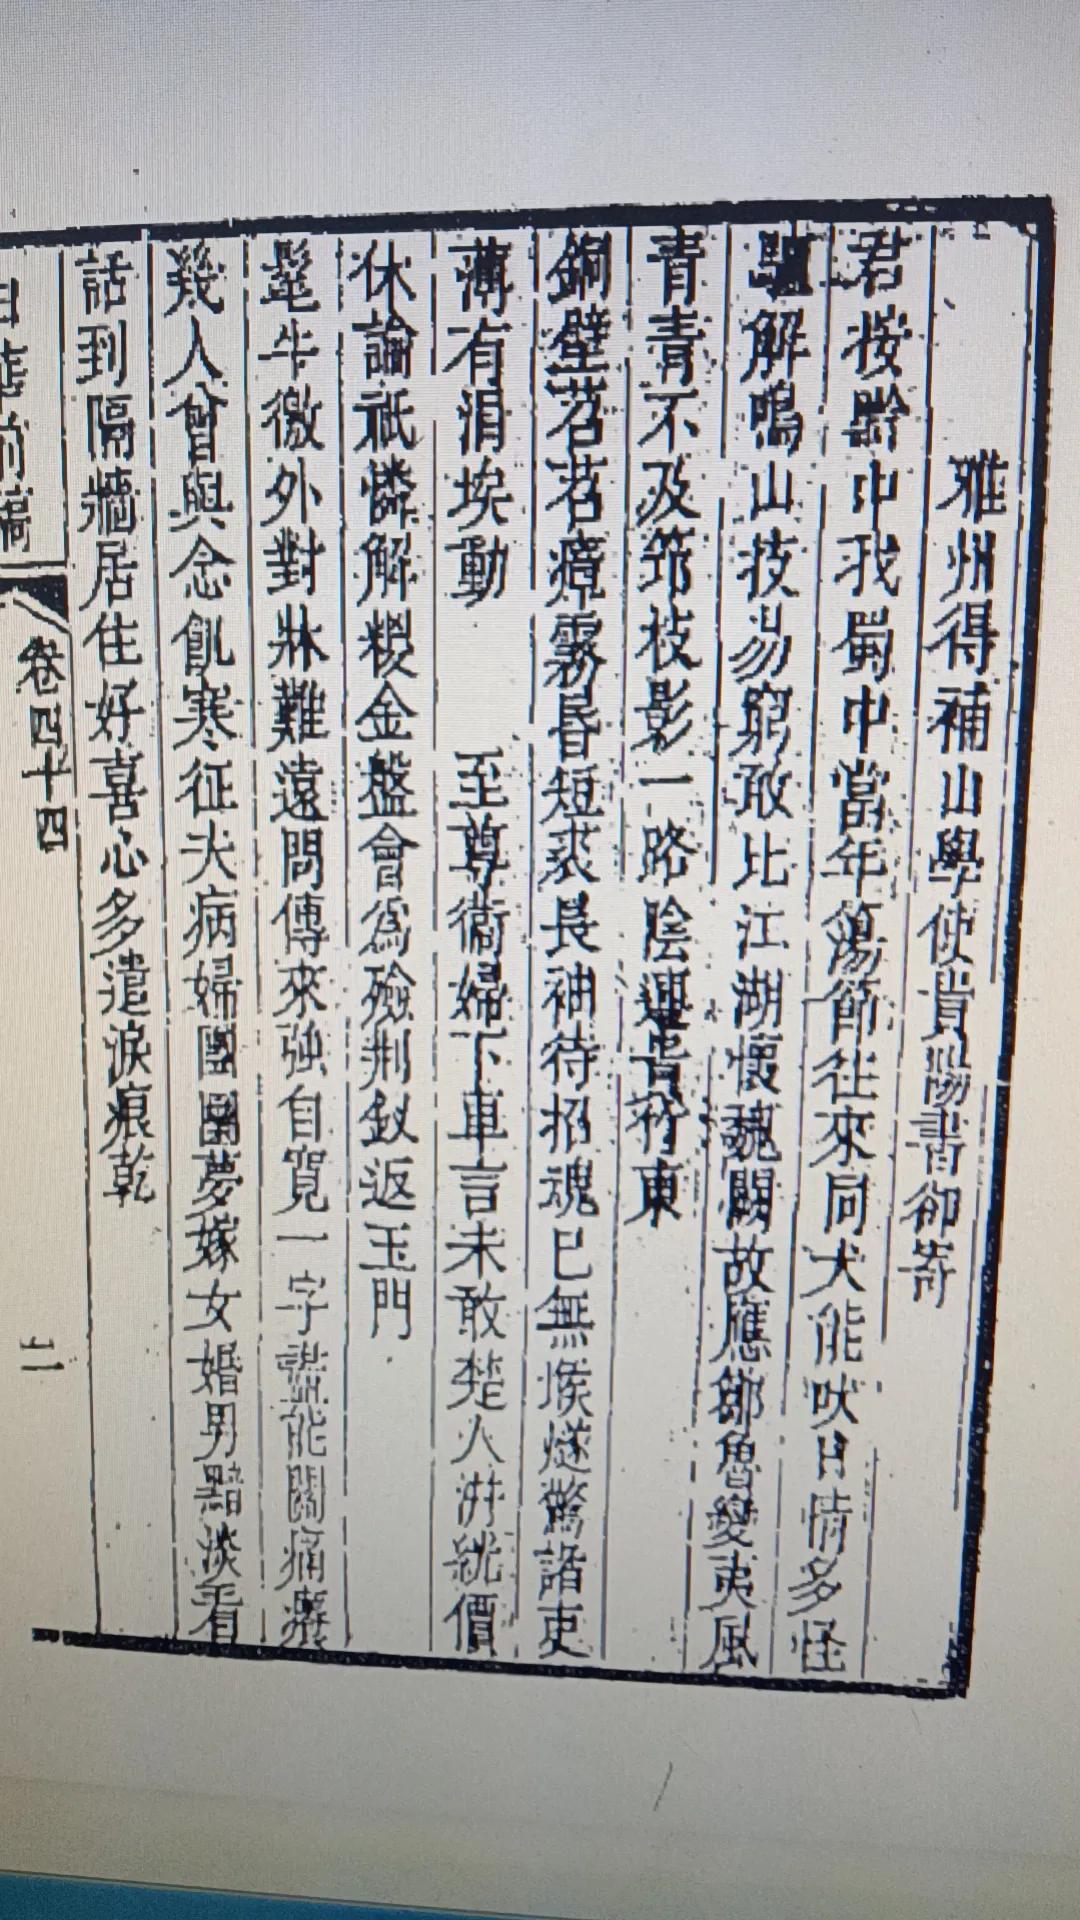 雅州得補山學使貴陽書卻寄
君按黔中我蜀中當年蕩節往來同犬能吠日情多怪
驢解鳴山技易窮敢比江湖懷魏闕故應鄒魯變夷風
青青不及筇枝影一路陰連苦竹東
銅壁苕苕瘴霧昏短裘長袖待招魂已無堠燧驚諸吏
薄有涓埃動　至尊衞婦下車言未敢楚人洴絖價
休論祇憐解糉金盤會為殮荆釵返玉門
髦牛徼外對牀難遠問傳來強自寬一字詎能關痛癢
幾人曾與念飢寒征夫病婦團圞夢嫁女婚男黯淡看
話到隔牆居住好喜心多遣淚痕乾
卷四十四